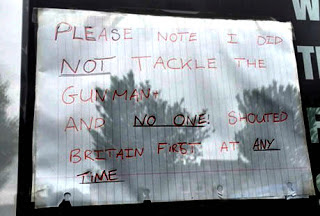 PLEASE NOTE I DID
NOT TACKLE THE
GUNMAN
AND NO ONE! SHOUTED
BRITAIN FIRST AT ANY
TIME